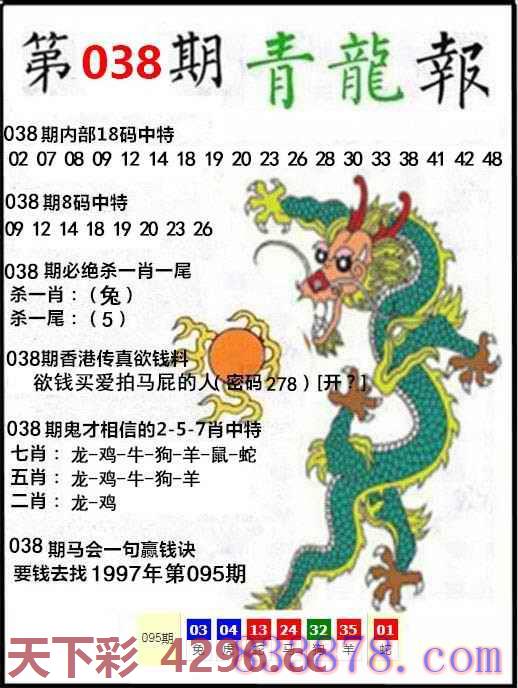 第038期青龍報
038期内部18码中特
02 07 08 09 12 14 18 19 20 23 26 28 30 33 38 41 42 48
038期8码中特
09 12 14 18 19 20 23 26
038期必绝杀一肖一尾
杀一肖：（兔）
杀一尾：（5）
038期香港传真欲钱料
欲钱买爱拍马屁的人（密码278）[开？]
038期鬼才相信的2-5-7肖中特
七肖：龙-鸡-牛-狗-羊-鼠-蛇
五肖：龙-鸡-牛-狗-羊
二肖：龙-鸡
038期马会一句赢钱诀
要钱去找1997年第095期
095期 03 04 13 24 32 35 01
兔 虎 蛇 马 狗 羊 蛇
天下彩 4296.cc
838878.com